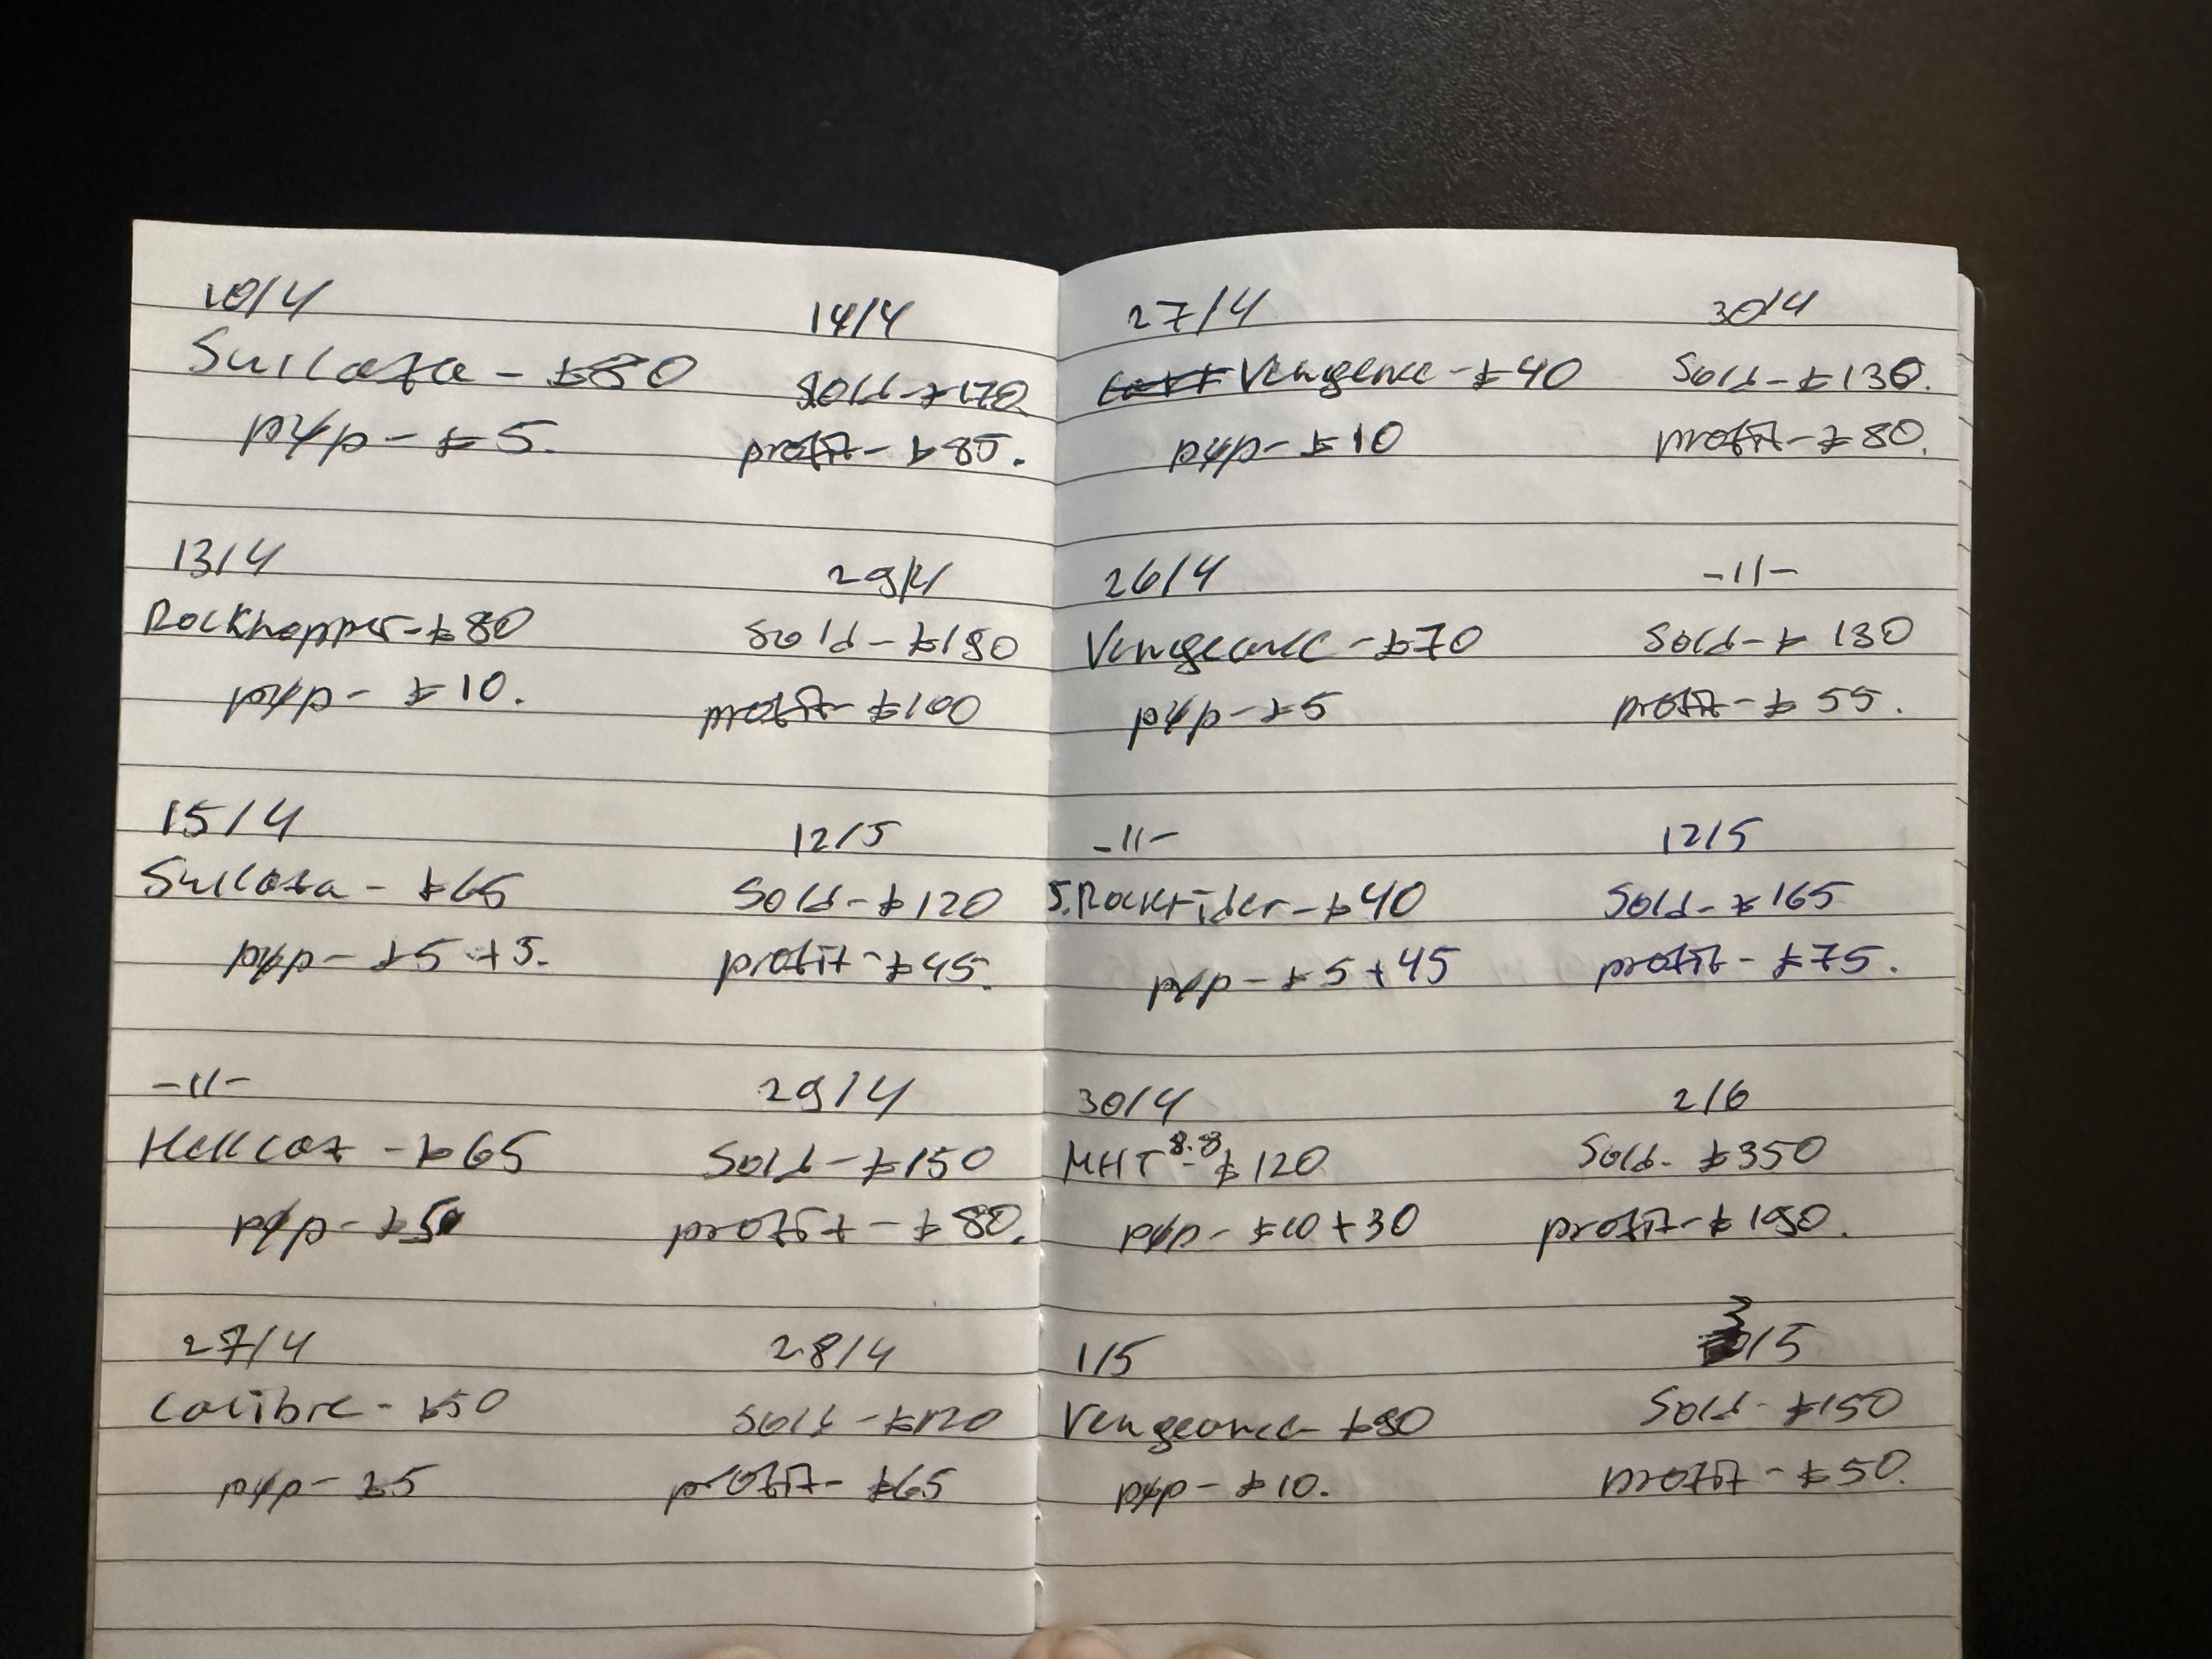 10/4
14/4
Sulcata - £80
Sold - £170
p4p - £5.
profit - £85.
13/4
29/4
Rockhopper - £80
Sold - £190
p4p - £10.
profit - £100
15/4
12/5
Sulcata - £65
Sold - £120
p4p - £5 + 5.
profit - £45.
-11-
29/4
Hellcat - £65
Sold - £150
p4p - £5
profit - £80.
27/4
28/4
Calibre - £50
Sold - £120
p4p - £5
profit - £65
27/4
30/4
Vengence - £40
Sold - £130.
p4p - £10
profit - £80.
26/4
-11-
Vengeance - £70
Sold - £130
p4p - £5
profit - £55.
-11-
12/5
5.Rockrider - £40
Sold - £165
p4p - £5 + 45
profit - £75.
30/4
2/6
MHT 8.8 - £120
Sold - £350
p4p - £10 + 30
profit - £190.
1/5
3/5
Vengeance - £90
Sold - £150
p4p - £10.
profit - £50.